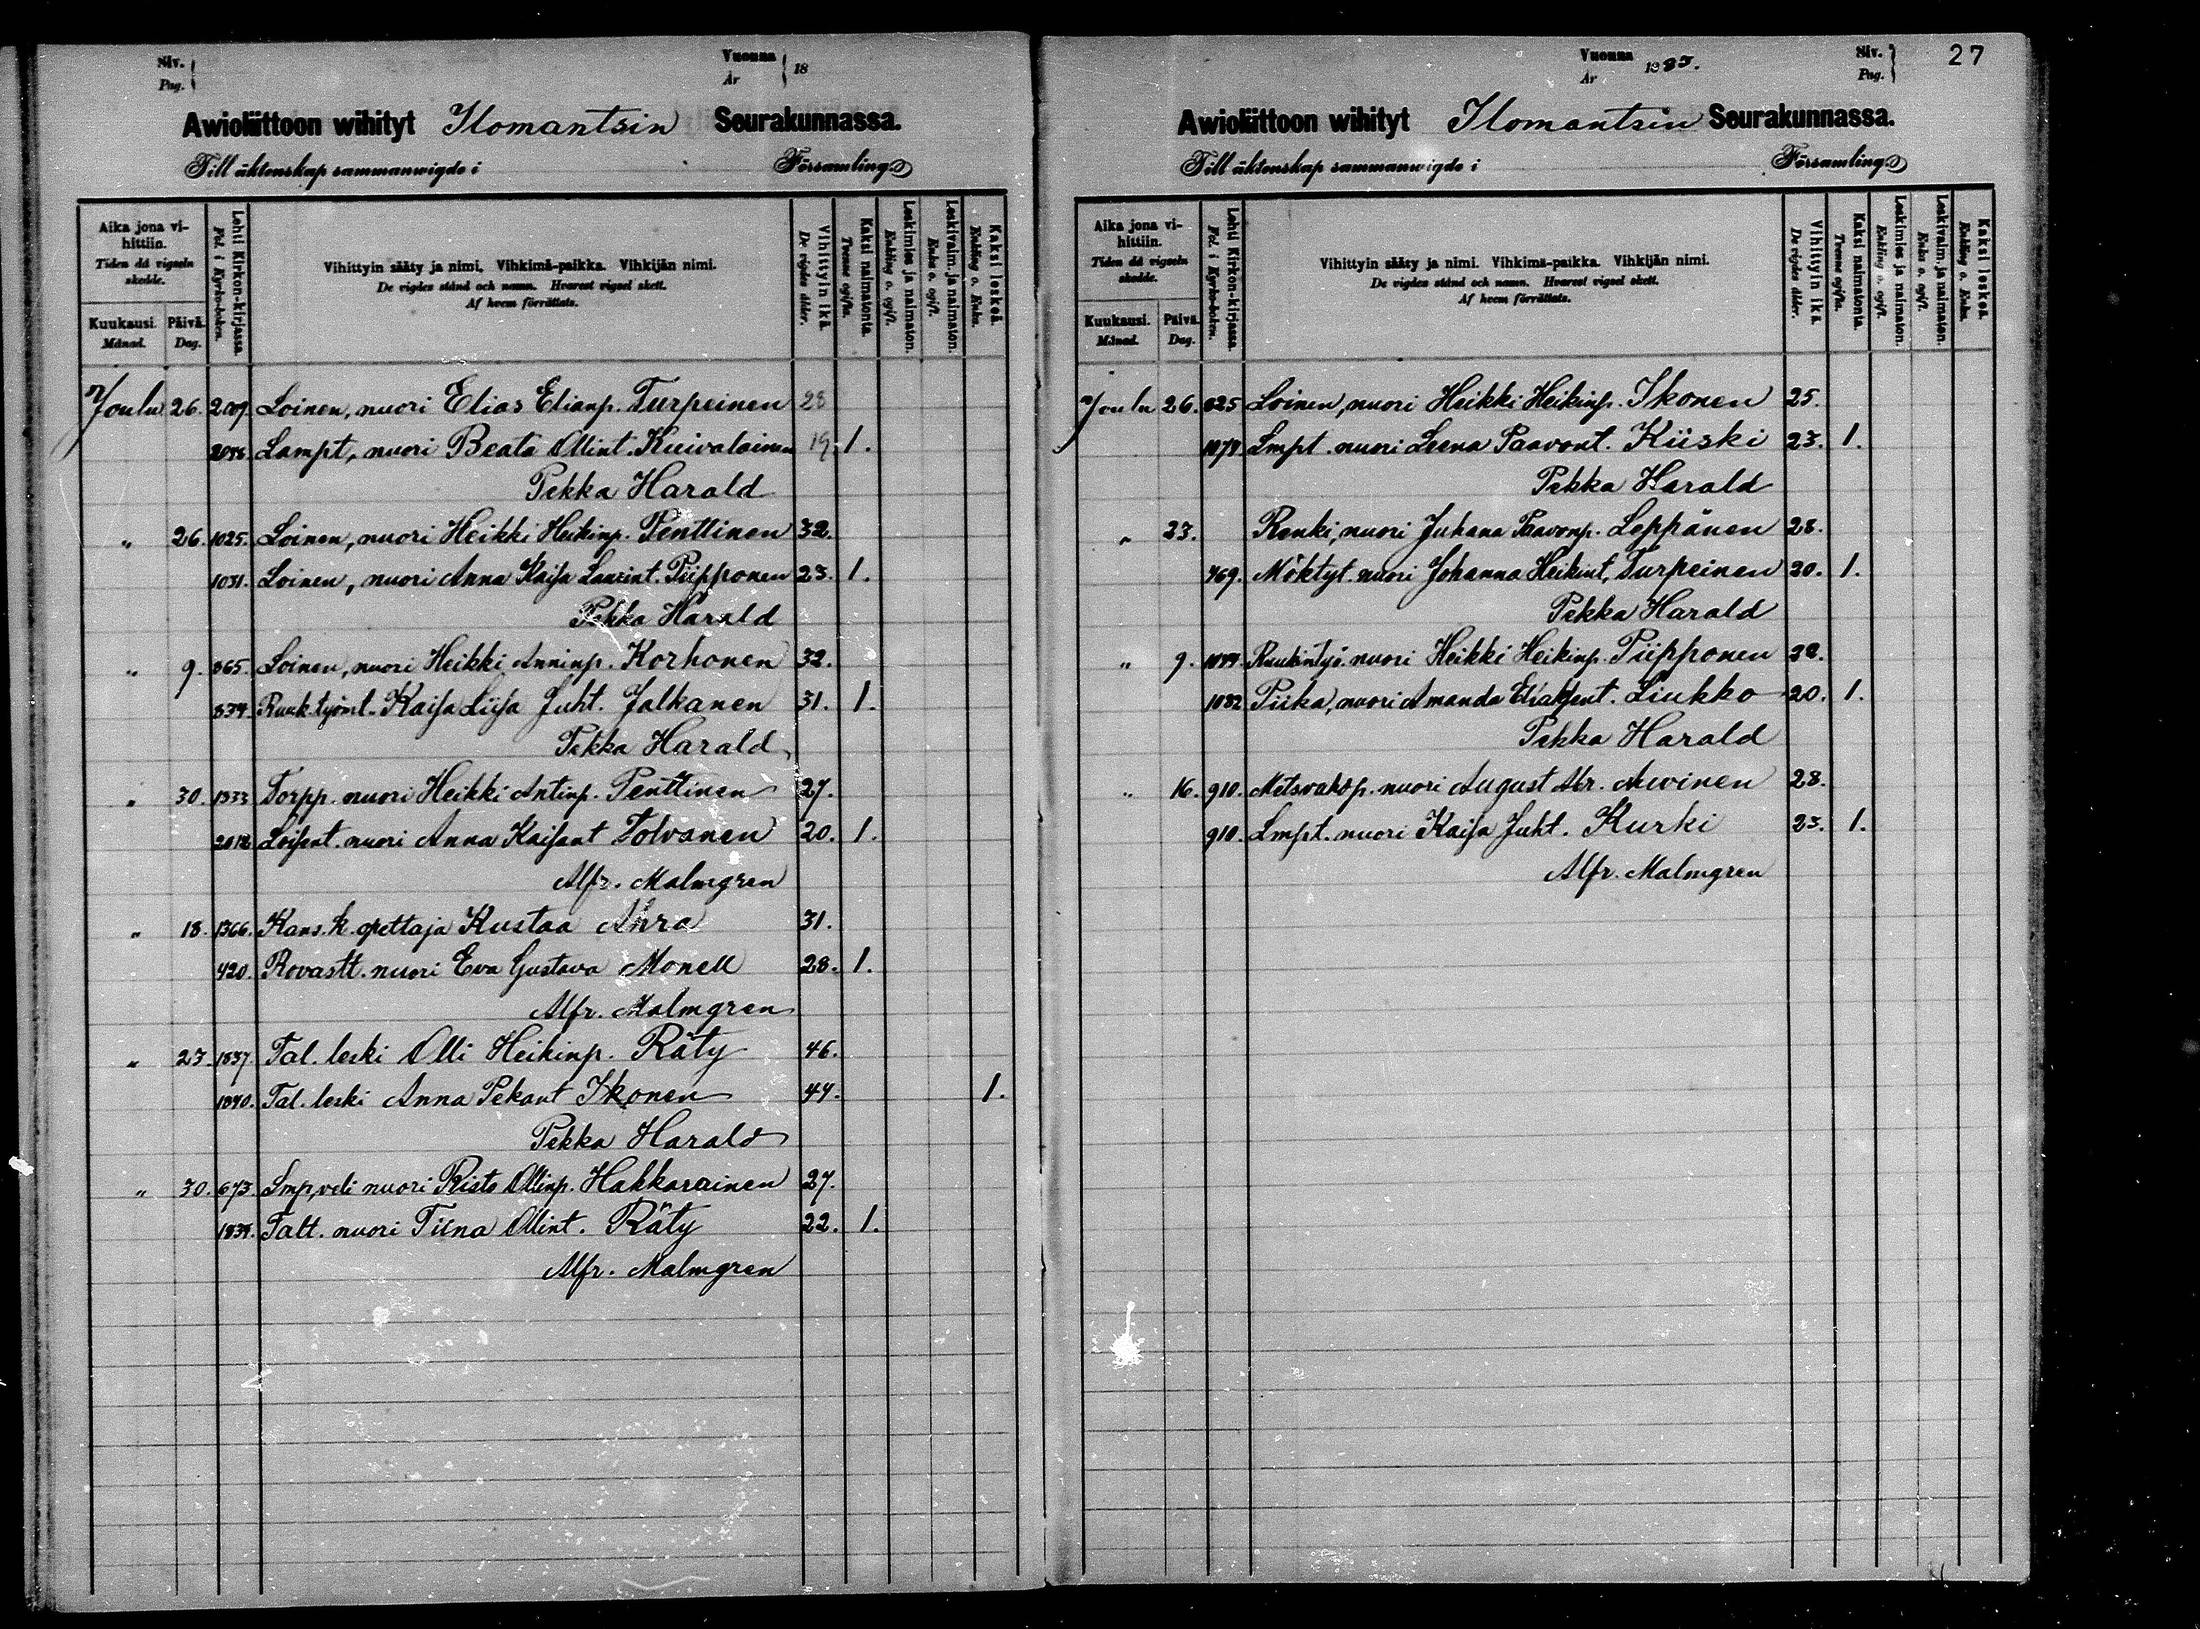 Siv. Pag.
Vuonna År 18
Awioliittoon wihityt Ilomantsin Seurakunnassa.
Till äktenskap sammanwigde i Församling
Aika jona vihittiin. Tiden då vigseln skedde.
Kuukausi. Månad.
Päivä. Dag.
Lehti Kirkon-kirjassa. Fol. i Kyrko-boken.
Vihittyin sääty ja nimi. Vihkimä-paikka. Vihkijän nimi.
De vigdes stånd och namn. Hvarest vigsel skett.
Af hvem förrättats.
Vihittyin ikä. De vigdes ålder.
Kaksi naimatonta. Tvenne ogifta.
Leskimies ja naimaton. Enkling o. ogift.
Leskivaim. ja naimaton. Enka o. ogift.
Kaksi leskeä. Enkling o. Enka.
Joulu 26. Loinen, nuori Elias Elianp. Turpeinen 23
Lampt, nuori Beata Ollint. Kuivalainen 19. 1.
Pekka Harald
" 26. 1025. Loinen, nuori Heikki Heikinp. Penttinen 32.
1031. Loinen, nuori Anna Kaisa Laurint. Piipponen 23. 1.
Pekka Harald
" 9. 865. Loinen, nuori Heikki Anninp. Korhonen 32.
834. Ruuk.työnt. Kaisa Liisa Juht. Jalkanen 31. 1.
Pekka Harald
" 30. 1333 Torpp. nuori Heikki Antinp. Penttinen 27.
Loisent. nuori Anna Kaisant Tolvanen 20. 1.
Alfr. Malmgren
" 18. 1366. Kans.k. opettaja Kustaa Ahra 31.
420. Rovastt. nuori Eva Gustava Monell 28. 1.
Alfr. Malmgren
" 23. 1837. Tal. leski Olli Heikinp. Räty 46.
1840. Tal. leski Anna Pekant Ikonen 44. 1.
Pekka Harald
" 30. 673. Lmp,veli nuori Risto Ollinp. Hakkarainen 27.
1839. Talt. nuori Tiina Ollint. Räty 22. 1.
Alfr. Malmgren
Vuonna År 1885.
Siv. Pag.
27
Awioliittoon wihityt Ilomantsin Seurakunnassa.
Till äktenskap sammanwigde i Församling
Aika jona vihittiin. Tiden då vigseln skedde.
Kuukausi. Månad.
Päivä. Dag.
Lehti Kirkon-kirjassa. Fol. i Kyrko-boken.
Vihittyin sääty ja nimi. Vihkimä-paikka. Vihkijän nimi.
De vigdes stånd och namn. Hvarest vigsel skett.
Af hvem förrättats.
Vihittyin ikä. De vigdes ålder.
Kaksi naimatonta. Tvenne ogifta.
Leskimies ja naimaton. Enkling o. ogift.
Leskivaim. ja naimaton. Enka o. ogift.
Kaksi leskeä. Enkling o. Enka.
Joulu 26. 825 Loinen, nuori Heikki Heikinp. Ikonen 25.
Lmpt. nuori Leena Paavont. Kiiski 23. 1.
Pekka Harald
" 23. Renki, nuori Juhana Paavonp. Leppänen 28.
769. Möktyt. nuori Johanna Heikint, Turpeinen 20. 1.
Pekka Harald
" 9. Ruukintyö. nuori Heikki Heikinp. Piipponen 22.
1082 Piika, nuori Amanda Eliaksent. Liukko 20. 1.
Pekka Harald
" 16. 910. nuori August Abr. 28.
910. Lmpt. nuori Kaisa Juht. Kurki 23. 1.
Alfr. Malmgren